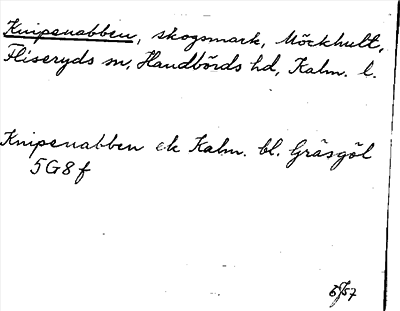 Knipenabben, skogsmark, Möckhult,
Fliseryds sn, Handbörds hd, Kalm. l.
Knipenabben ek Kalm. bl. Gräsgöl
5G8f